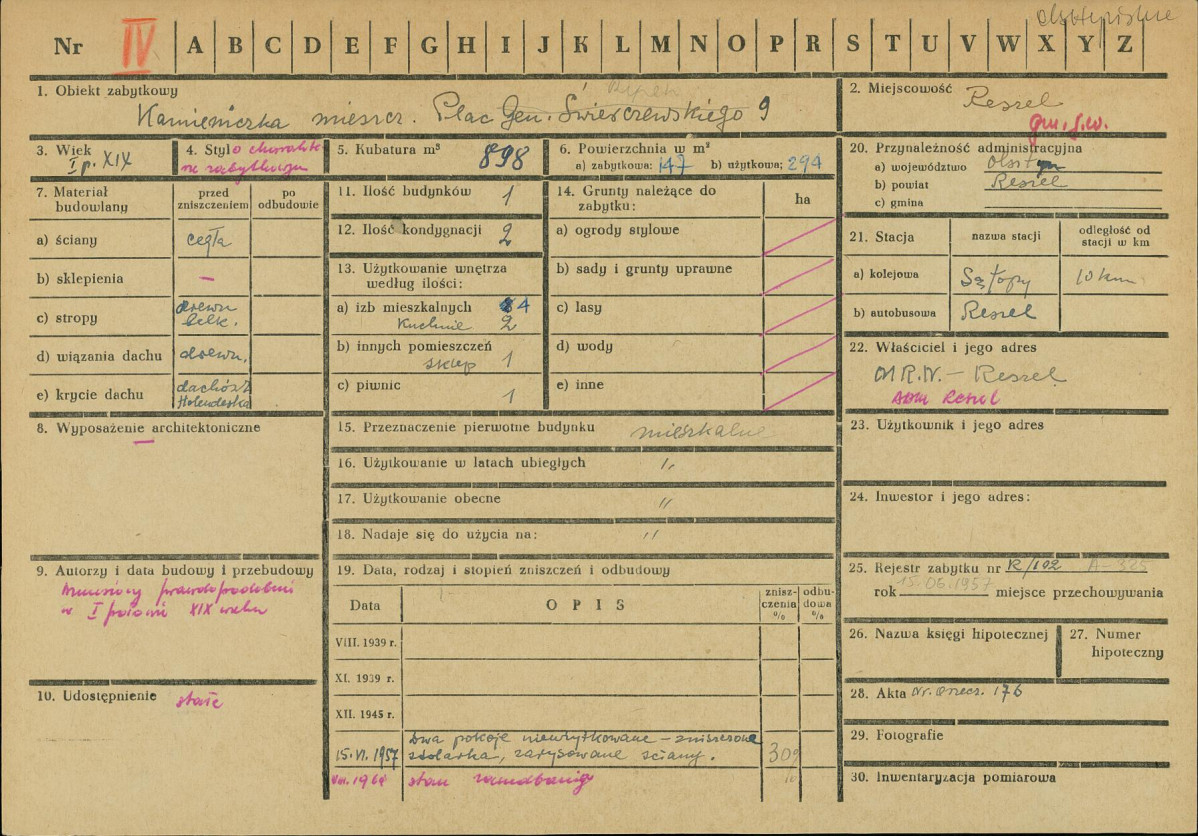 olsztyńskie
Nr IV A B C D E F G H I J K L M N O P R S T U V W X Y Z
1. Obiekt zabytkowy
Rynek
Kamieniczka mieszcz. Plac Gen. Świerczewskiego 9
2. Miejscowość Reszel
gm. j.w.
3. Wiek
I p. XIX
4. Styl o charakte
rze zabytkowym
5. Kubatura m³ 898
6. Powierzchnia w m²
a) zabytkowa: 147 b) użytkowa: 294
20. Przynależność administracyjna
a) województwo Olsztyn
b) powiat Reszel
c) gmina
7. Materiał budowlany
przed zniszczeniem
po odbudowie
a) ściany cegła
b) sklepienia —
c) stropy drewn belk.
d) wiązania dachu drewn.
e) krycie dachu dachówka Holenderska
11. Ilość budynków 1
12. Ilość kondygnacji 2
13. Użytkowanie wnętrza
według ilości:
a) izb mieszkalnych 4
Kuchnie 2
b) innych pomieszczeń
sklep 1
c) piwnic 1
14. Grunty należące do
zabytku:
ha
a) ogrody stylowe
b) sady i grunty uprawne
c) lasy
d) wody
e) inne
21. Stacja
nazwa stacji
odległość od
stacji w km
a) kolejowa Sątopy 10 km
b) autobusowa Reszel
22. Właściciel i jego adres
M R.N. — Reszel
ADM Reszel
8. Wyposażenie architektoniczne
—
15. Przeznaczenie pierwotne budynku mieszkalne
16. Użytkowanie w latach ubiegłych "
17. Użytkowanie obecne "
18. Nadaje się do użycia na: "
23. Użytkownik i jego adres
24. Inwestor i jego adres:
9. Autorzy i data budowy i przebudowy
wzniesiony prawdopodobnie
w I połowie XIX wieku
10. Udostępnienie stałe
19. Data, rodzaj i stopień zniszczeń i odbudowy
Data
OPIS
znisz-
czenia
%
odbu-
dowa
%
VIII. 1939 r.
XI. 1939 r.
XII. 1945 r.
15.VI.1957 Dwa pokoje nieużytkowane – zniszczona
stolarka, zarysowane ściany. 30%
stan zaniedbania
25. Rejestr zabytku nr R/102 A-325
rok 15.06.1957 miejsce przechowywania
26. Nazwa księgi hipotecznej
27. Numer
hipoteczny
28. Akta Nr. orzecz. 176
29. Fotografie
30. Inwentaryzacja pomiarowa